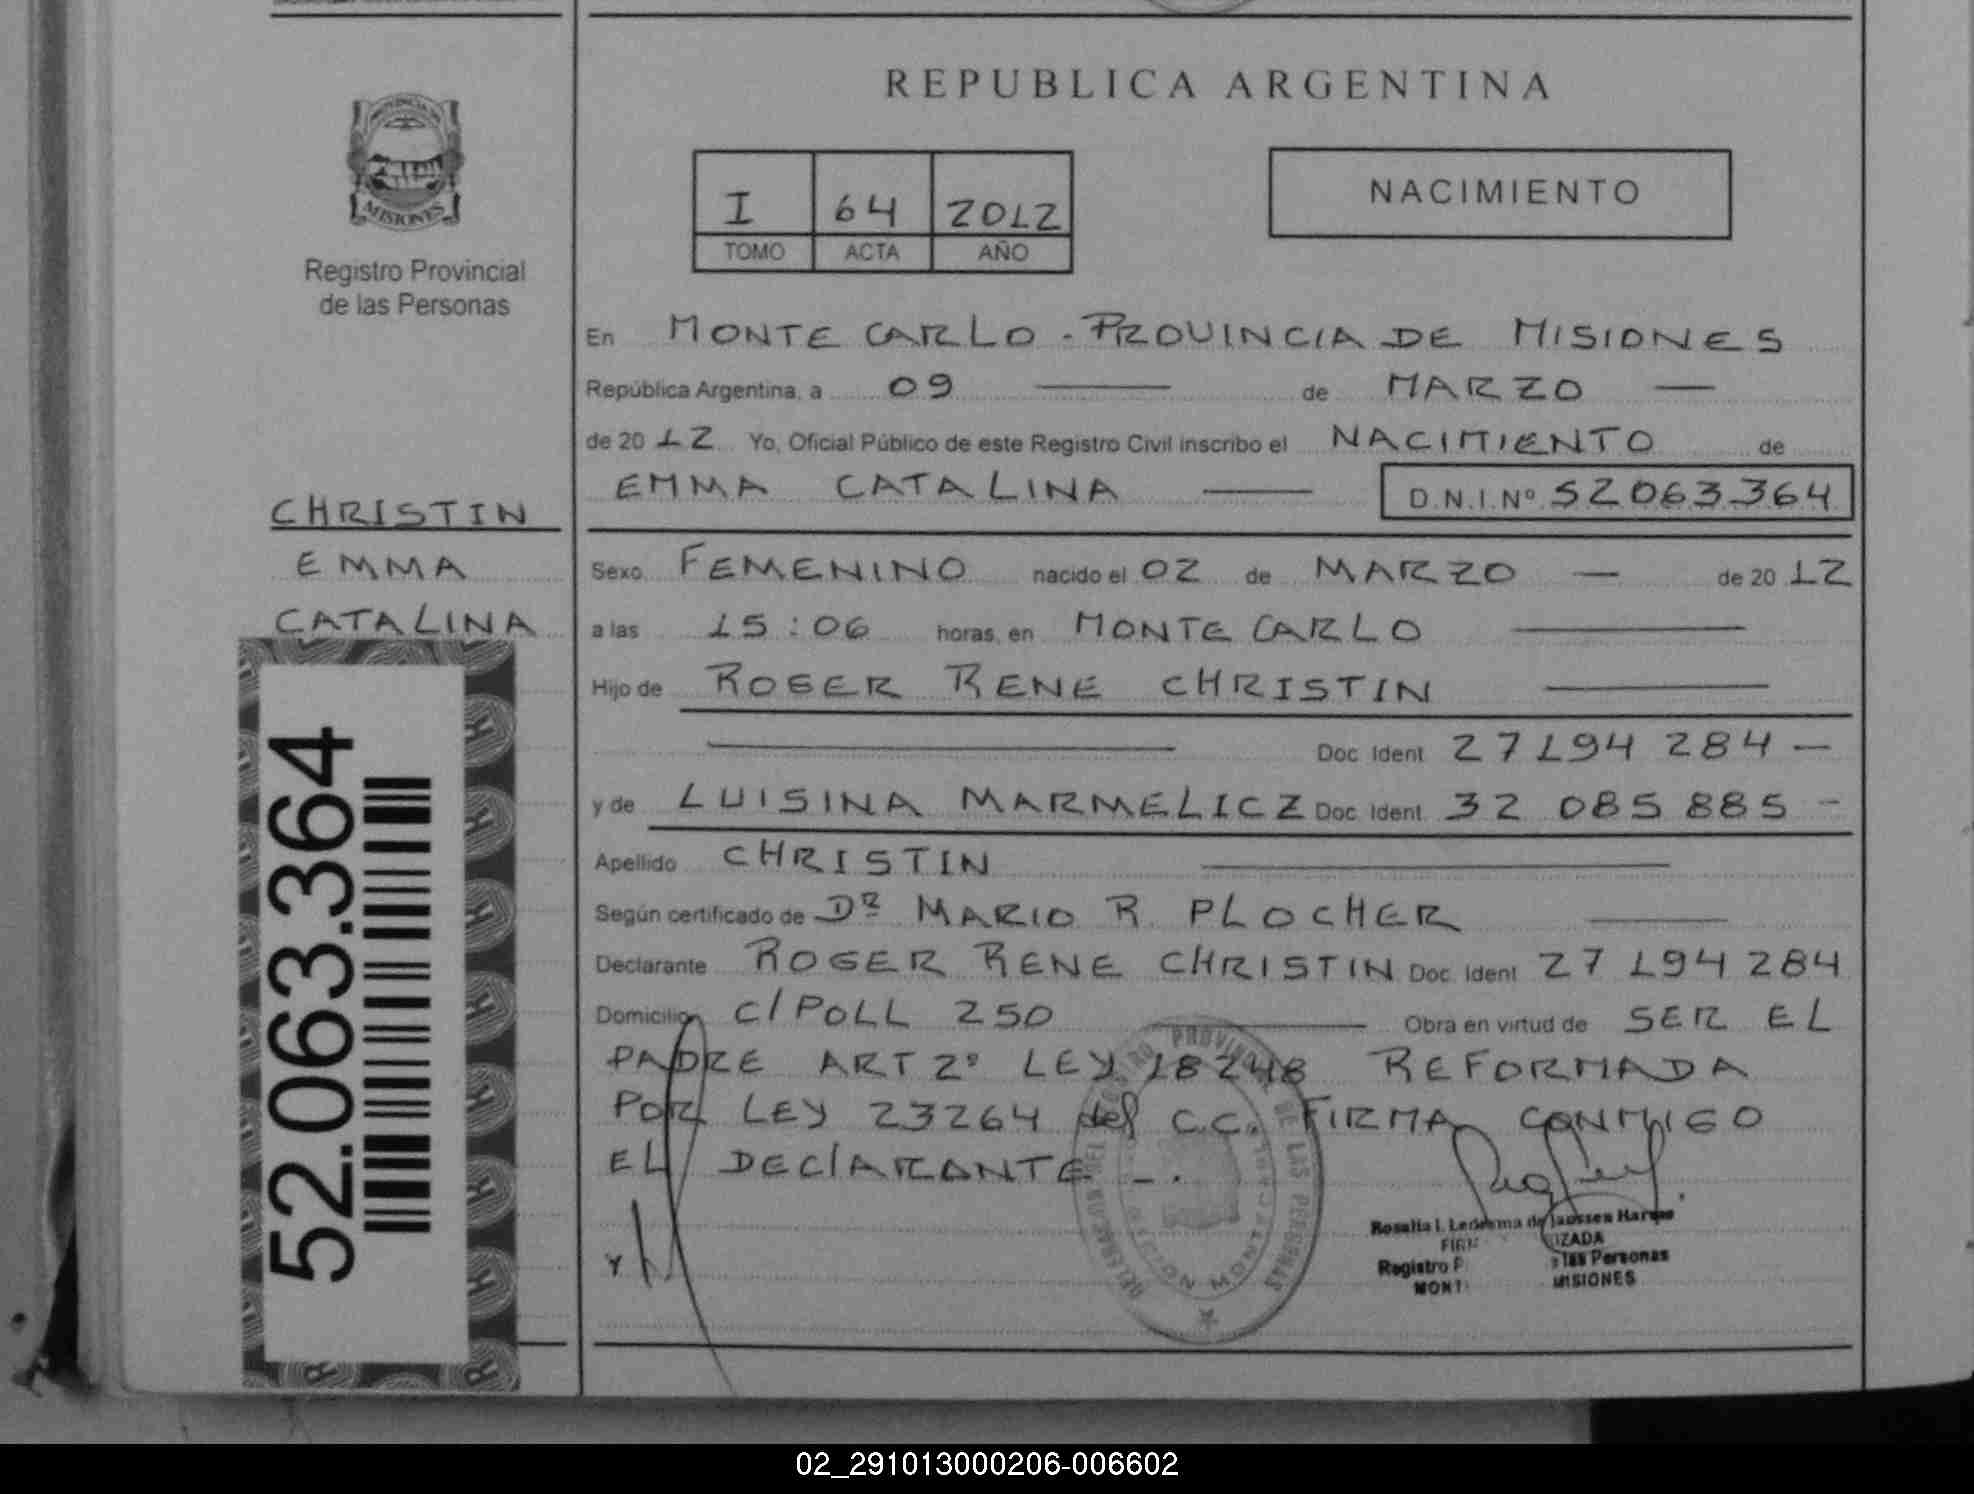 REPUBLICA ARGENTINA
PROVINCIA DE
MISIONES
Registro Provincial
de las Personas
I 64 2012
TOMO ACTA AÑO
NACIMIENTO
En MONTE CARLO - PROVINCIA DE MISIONES
República Argentina, a 09 — de MARZO —
de 20 12 Yo, Oficial Público de este Registro Civil inscribo el NACIMIENTO de
EMMA CATALINA — D.N.I.Nº 52063364
CHRISTIN
EMMA
CATALINA
52.063.364
Sexo FEMENINO nacido el 02 de MARZO — de 20 12
a las 15:06 horas, en MONTE CARLO —
Hijo de ROGER RENE CHRISTIN —
— Doc. Ident. 27194284 —
y de LUISINA MARMELICZ Doc. Ident. 32 085 885 -
Apellido CHRISTIN —
Según certificado de Dr MARIO R. PLOCHER —
Declarante ROGER RENE CHRISTIN Doc. Ident. 27 194 284
Domicilio C/POLL 250 — Obra en virtud de SER EL
PADRE ART 2º LEY 18248 REFORMADA
POR LEY 23264 del C.C. FIRMA CONMIGO
EL DEClARANTE - .
Rosalia I. Ledesma de Janssen
Registro
las Personas
MISIONES
02_291013000206-006602